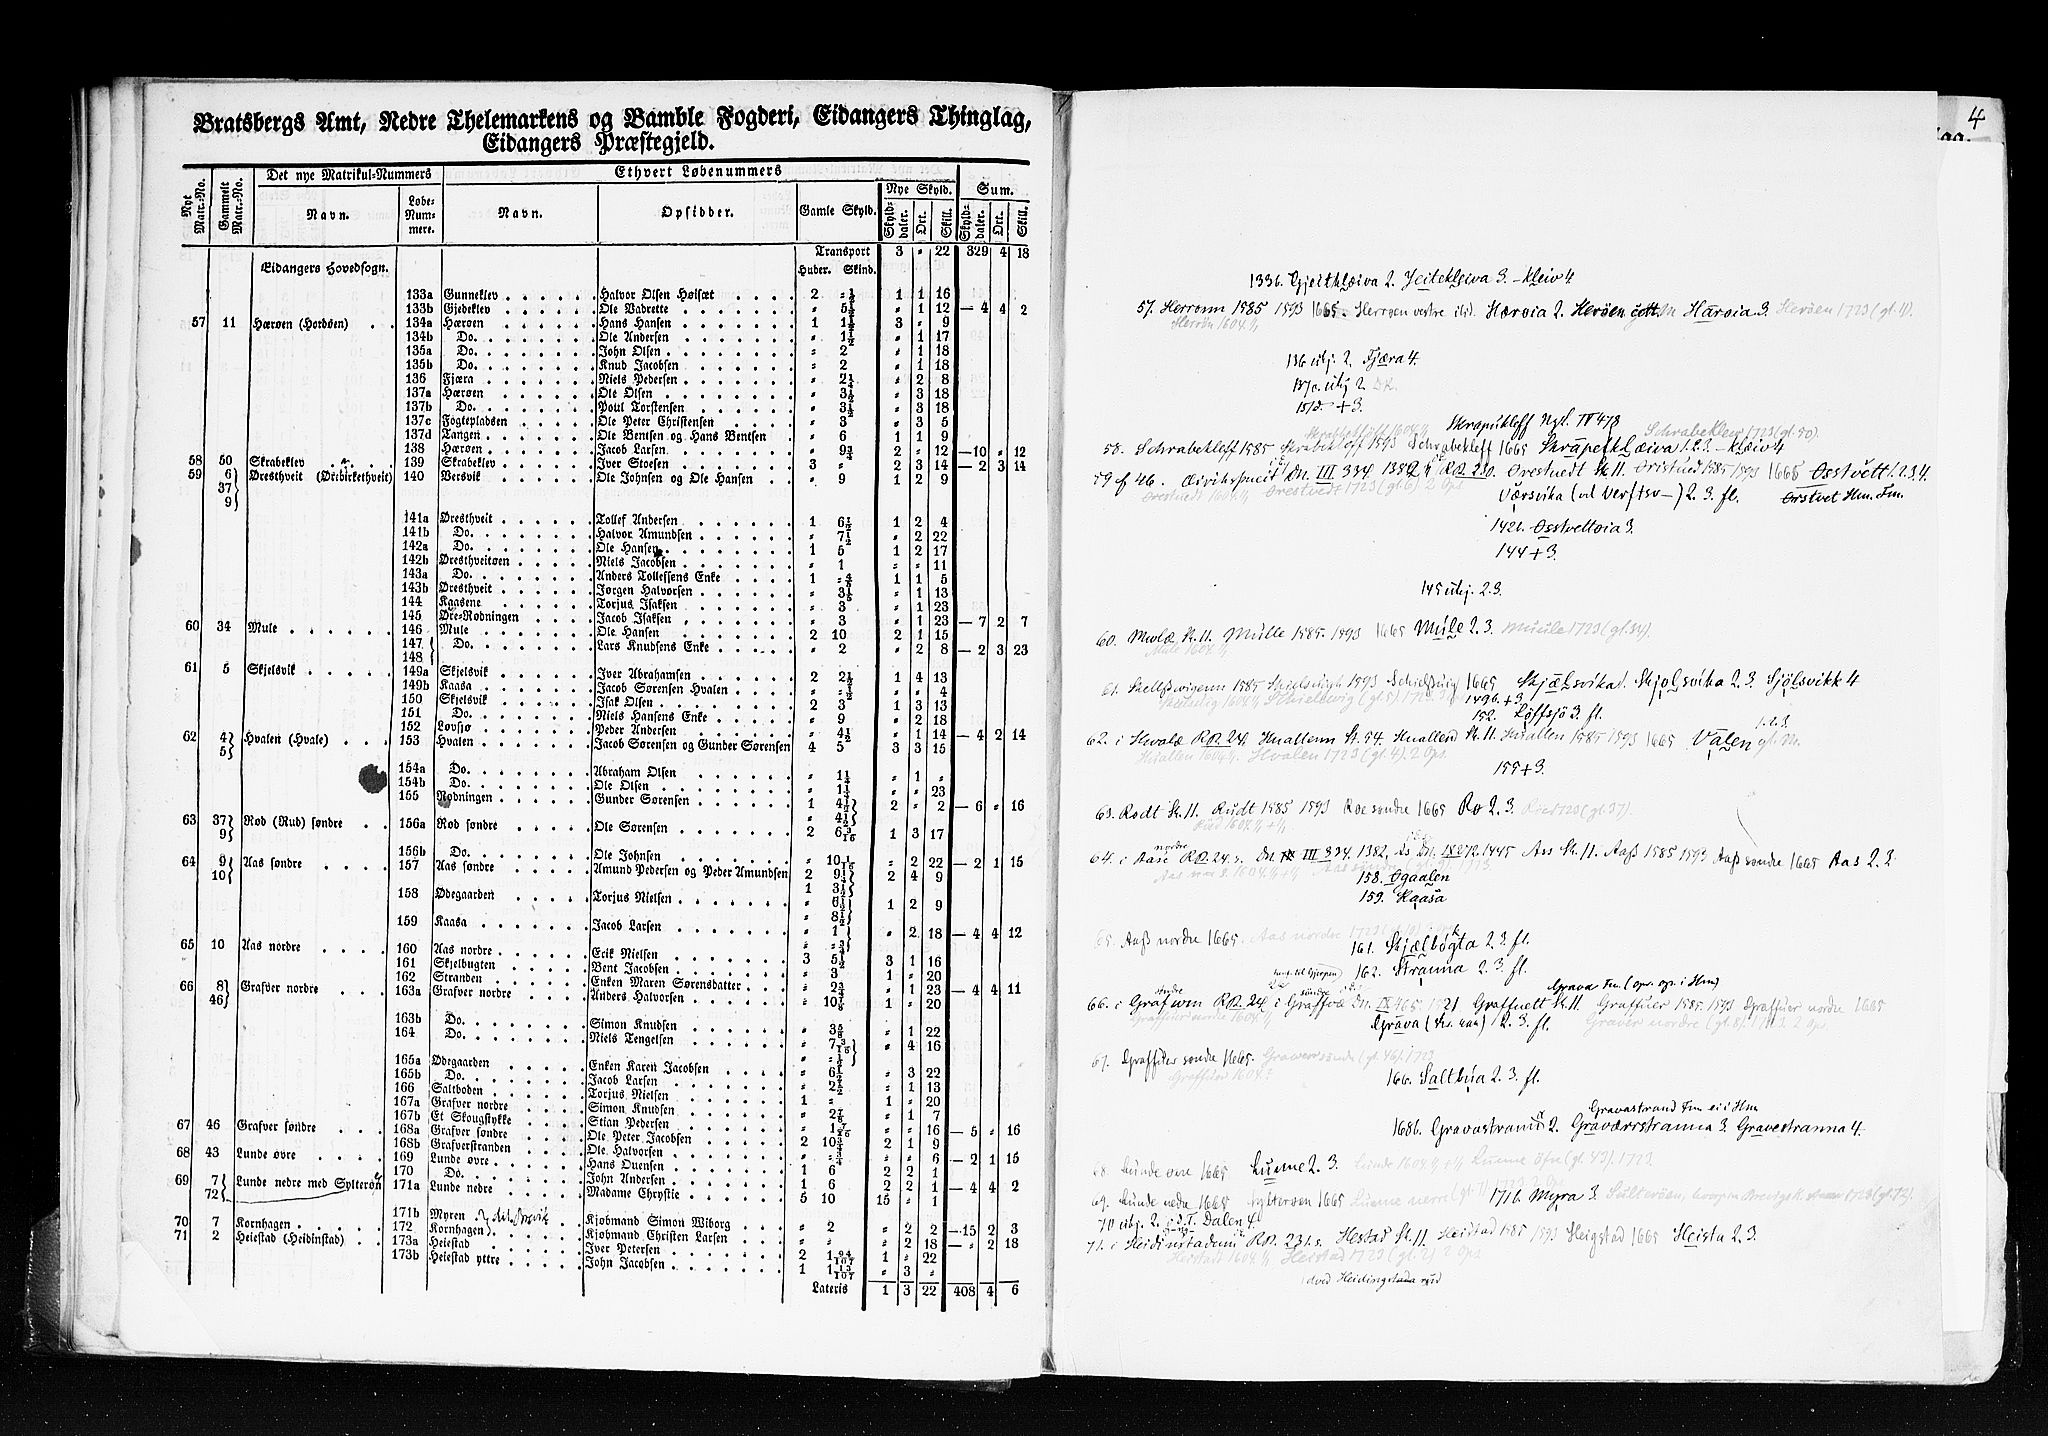 Bratsbergs Amt, Nedre Thelemarkens og Bamble Fogderi, Eidangers Thinglag,
Eidangers Præstegjeld.
Nye Matr.-No. Gammelt Matr.-No. Det nye Matrikul-Nummers Ethvert Løbenummers
Navn. Løbe-Num-mere. Navn. Opsidder. Gamle Skyld. Nye Skyld. Sum.
Skyld-daler. Ort. Skill. Skyld-daler. Ort. Skill.
Transport 3 " 22 329 4 18
Eidangers Hovedsogn. Huder. Skind.
133a Gunneklev Halvor Olsen Høisæt 2 "½ 1 1 16
133b Gjedeklev Ole Vadrette " 5½ " 1 12 — 4 4 2
57 11 Hærøen (Hordøen) 134a Hærøen Hans Hansen 1 1½ 3 " 9
134b Do. Ole Andersen " 1½ " 1 17
135a Do. John Olsen " 2 " 1 18
135b Do. Knud Jacobsen " 2 " 1 18
136 Fjæra Niels Pedersen " 2¼ " 2 8
137a Hærøen Ole Olsen " 3½ " 3 18
137b Do. Poul Torstensen " 3½ " 3 18
137c Fogtepladsen Ole Peter Christensen " 3 " 3 5
137d Tangen Ole Bentsen og Hans Bentsen " 6 1 1 9
138 Hærøen Jacob Larsen " 9¾ 2 " 12 — 10 " 12
58 50 Skrabeklev 139 Skrabeklev Iver Stoesen 3 " 2 3 14 — 2 3 14
59 6 37 9 Øresthveit (Øribirkethveit) 140 Versvik Ole Johnsen og Ole Hansen " 9 1 2 9
141a Øresthveit Tollef Andersen 1 6½ 1 2 4
141b Do. Halvor Amundsen " 7½ " 2 22
142a Do. Ole Hansen 1 5 1 2 17
142b Øresthveitøen Niels Jacobsen " 1 " " 11
143a Do. Anders Tollefsens Enke 1 1 1 5
143b Øresthveit Jørgen Halvorsen " " 1 13
144 Kaasene Torjus Isaksen " 3 " 1 23
145 Øre-Rødningen Jacob Isaksen " 3 " 1 23 — 7 2 7
60 34 Mule 146 Mule Ole Hansen 2 10 2 1 15
147 148 Do. Lars Knudsens Enke " 2 " 2 8 — 2 3 23
61 5 Skjelsvik 149a Skjelsvik Iver Abrahamsen 2 2½ 1 4 13
149b Kaasa Jacob Sørensen Hvalen " "½ " " 4
150 Skjelsvik Isak Olsen 2 3 1 3 13
151 Do. Niels Hansens Enke " 9 " 2 18
152 Lovsjø Peder Andersen " 4½ " 1 14 — 4 2 14
62 4 5 Hvalen (Hvale) 153 Hvalen Jacob Sørensen og Gunder Sørensen 4 5 3 3 15
154a Do. Abraham Olsen " 1¼ " 1 "
154b Do. Ole Olsen " 1¼ " " 23
155 Rødningen Gunder Sørensen 1 4½ " 4½ 2 " 2 — 6 " 16
63 37 9 Rød (Rud) søndre 156a Rød søndre Ole Sørensen 2 6 3/16 1 3 17
156b Do. Ole Johnsen " 10 1/16 " 2 22 — 2 1 15
64 9 10 Aas søndre 157 Aas søndre Amund Pedersen og Peder Amundsen 2 9¼ 2 4 9
158 Ødegaarden Torjus Nielsen 1 3½ 1 2 9
159 Kaasa Jacob Larsen " 8½ " 1 " 2 18 — 4 4 12
65 10 Aas nordre 160 Aas nordre Erik Nielsen 3 5½ 3 1 16
161 Skjelbugten Bent Jacobsen " 3 1 " 20
162 Stranden Enken Maren Sørensdatter " 2¾ " 1 23 — 4 4 11
66 8 46 Grafver nordre 163a Grafver nordre Anders Halvorsen " 10⅞ 1 " 20
163b Do. Simon Knudsen " " 1 22
164 Do. Niels Tengelsen " 7 3/16 " 4 16
165a Ødegaarden Enken Karen Jacobsen " 6½ " 3 22
165b Do. Jacob Larsen " 2½ " 1 13
166 Saltboden Torjus Nielsen 1 " 1 " 20
167a Grafver nordre Simon Knudsen " 2⅞ " 1 7
167b Et Skougstykke Stian Pedersen " " " 16 — 5 " 16
67 46 Grafver søndre 168a Grafver søndre Ole Peter Jacobsen 2 10¾ 2 1 9
168b Grafverstranden Ole Halvorsen " "¾ " " 6 — 2 1 15
68 43 Lunde øvre 169 Lunde øvre Hans Ouensen 1 6 2 2 1
170 Do. John Andersen 1 6 2 2 1 — 4 4 2
69 7 72 Lunde nedre med Sylterøn 171a Lunde nedre Madame Chrystie 5 10 15 " 1
171b Myren Kjøbmand Simon Wiborg " 2 " 2 2 — 15 2 3
70 7 Kornhagen 172 Kornhagen Kjøbmand Christen Larsen " " " 2 18 — " 2 18
71 2 Heiestad (Heidinstad) 173a Heiestad Iver Petersen 2 1 94/107 1 " 22
173b Heiestad yttre John Jacobsen 1 1 13/107 " 3 "
Lateris 1 3 22 408 4 6
4
133b. Gjeitklæiva 2. Jeitekleiva 3. – kleiv 4
57. Herrønn 1585 1593 1665. Herrøen vestre ibid. Hærøia 2. Herøen Hærøia 3. Herøen 1723 (gl. 11).
Herrön 1604
136 ubj. 2. Fjæra 4.
137c. ubj 2.
137d. + 3.
Skrapukleff Ngl. IV 478
Schrabeklew 1723 (gl. 50).
58. Schrabekleff 1585 Skrabekloff 1593 Schrabekleff 1665 Skrapeklæiva 1.2.3. – kleiv 4
59 f 46. Dn. III 334 1382 RB. 230. Orestuedt St. 11. Oristued 1585 1593 1665 Øsstvett 1.2.3.4.
Orestuedt 1604 Orestvedt 1723 (gl. 6) 2 Ops Værsvika (vel Verftsv–) 2. 3. fl. Ørstvet Hm. Fm.
142b. Øsstvettøia 3.
144 + 3.
145 ubj. 2.3.
60. Mwlæ St. 11. Mulle 1585. 1593 1665 Mule 2. 3. Muule 1723 (gl. 34).
Mule 1604.
61. Skelssvigenn 1585 1593 1665 Skjælsvika 1. Skjolsvika 2. 3. Sjölsvikk 4
149b. + 3.
152. Løffsjö 3. fl.
62. i Hwalæ RB. 24. Huallenn St. 54. Huallend St. 11. Huallen 1585 1593 1665 Valen 1.2.3. gl. M.
Huallen 1604 Hvalen 1723 (gl. 4). 2 Ops.
155 + 3.
63. Rodt St. 11. Rudt 1585 1593 Roe søndre 1665 Rø 2. 3.
64. i Aase nordre RB. 24. s. Dn. III 334. 1382, 1445 Ass St. 11. Aass 1585 1593 Aass søndre 1665 Aas 2. 3.
158. Øgaalen
159. Kaasa
65. Aass nordre 1665. Aas nordre 1723
161. Skjælbogta 2. 3. fl.
162. Stranna 2. 3. fl.
66. i Grafwin RB. 24 i Graffwæ søndre Dn. IX 465. 1521 Graffuett St. 11. Graffuer 1585. 1593 Graffuer nordre 1665
Grava Fm. (opr. opr. i Hm)
Graffuer nordre 1604 Grava 2. 3. fl. Graver nordre (gl. 8). 1723. 2 Ops
67. Graffuer søndre 1665. Grawer søndre (gl. 46). 1723
Graffuer 1604
166. Saltbua 2. 3. fl.
Gravastrand Fm ei i Hm
168b. Gravastrann 2. Graværrstranna 3. Gravestranna 4.
68. Lunde øvre 1665 Lunne 2. 3. Lunde 1604 Lunne öfre (gl. 43). 1723.
69. Lunde nedre 1665 Sylterøen 1665 171b. Myra 3.
70 ubj. 2. Dalen 4.
71. i Heidinstadum RB. 231. s. Hestad St. 11 Heistad 1585 1593 Heigstad 1665 Heista 2. 3.
Heistad 1604 Heistad 1723 (gl. 2) 2 Ops
(ved Heidingstada rud